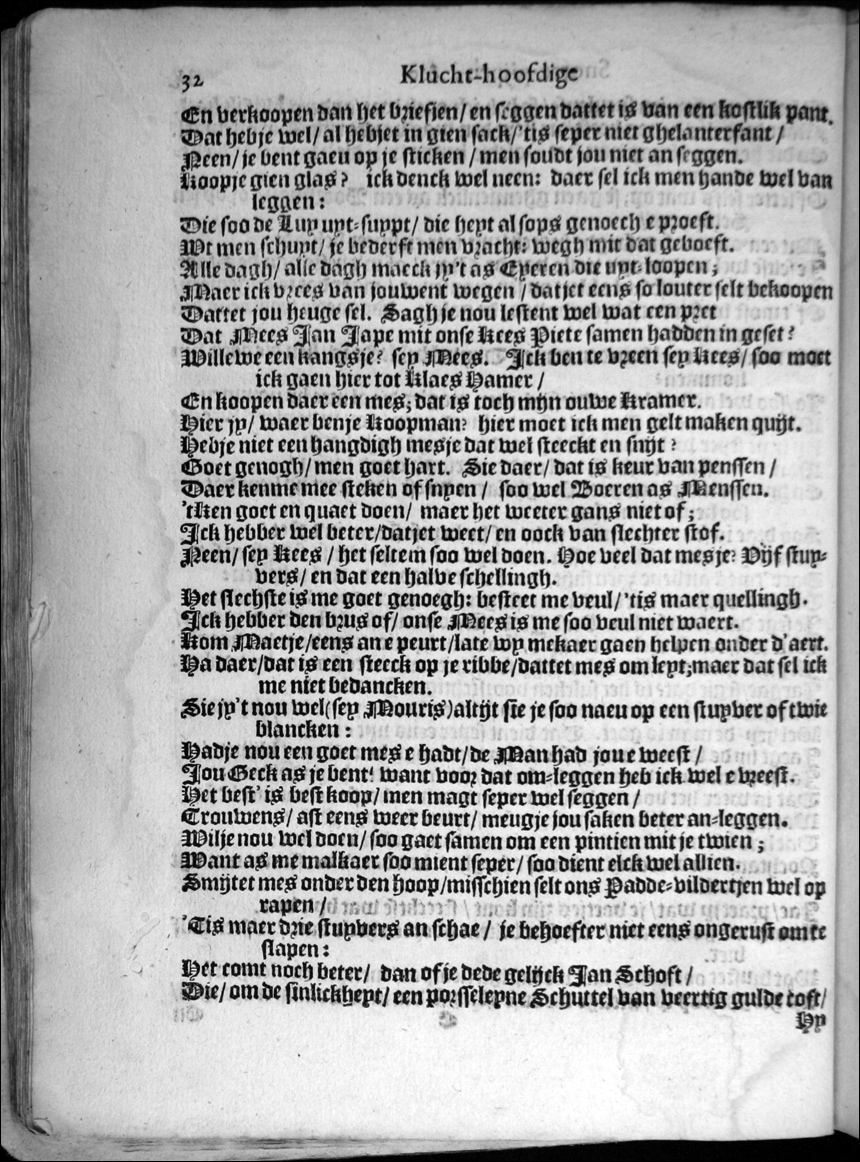 32 Klucht-hoofdige
En verkoopen dan het briefjen/ en seggen dattet is van een kostlik pant.
Dat hebje wel/ al hebjet in gien sack/ 'tis seper niet ghelanterfant /
Neen/ je bent gaeu op je sticken / men soudt jou niet an seggen.
Koopje gien glas? ick denck wel neen: daer sel ick men hande wel van
leggen:
Die soo de Luy uyt-suypt/ die heyt al sops genoech e proeft.
Wt men schuyt/ je bederft men vracht: wegh mit dat geboeft.
Alle dagh/ alle dagh maeck jy't as Eyeren die uyt-loopen;
Maer ick vrees van jouwent wegen / datjet eens so louter selt bekoopen
Dattet jou heuge sel. Sagh je nou lestent wel wat een pret
Dat Mees Jan Jape mit onse Kees Piete samen hadden in geset?
Wille we een kangsje? sey Mees. Ick ben te vreen sey Kees/ soo moet
ick gaen hier tot Klaes Hamer /
En koopen daer een mes; dat is toch mijn ouwe Kramer.
Hier jy/ waer benje Koopman? hier moet ick men gelt maken quijt.
Hebje niet een hangdigh mesje dat wel steeckt en snijt?
Goet genogh/ men goet hart. Sie daer/ dat is keur van penssen /
Daer kenme mee steken of snyen / soo wel Boeren as Menssen.
'tKen goet en quaet doen/ maer het weeter gans niet of;
Ick hebber wel beter/ datjet weet/ en oock van slechter stof.
Neen/ sey Kees / het seltem soo wel doen. Hoe veel dat mesje? Vijf stuy-
vers/ en dat een halve schellingh.
Het slechste is me goet genoegh: besteet me veul/ 'tis maer quellingh.
Ick hebber den brus of/ onse Mees is me soo veul niet waert.
Kom Maetje/ eens an e peurt/ late wy mekaer gaen helpen onder d'aert.
Ha daer/ dat is een steeck op je ribbe/ dattet mes om leyt; maer dat sel ick
me niet bedancken.
Sie jy't nou wel (sey Mouris) altijt sie je soo naeu op een stuyver of twie
blancken:
Hadje nou een goet mes e hadt/ de Man had jou e weest /
Jou Geck as je bent! want voor dat om-leggen heb ick wel e vreest.
Het best' is best koop/ men magt seper wel seggen /
Trouwens/ ast eens weer beurt/ meugje jou saken beter an-leggen.
Wilje nou wel doen/ soo gaet samen om een pintien mit je twien ;
Want as me malkaer soo mient seper/ soo dient elck wel allien.
Smijtet mes onder den hoop/ misschien selt ons Padde-vildertjen wel op
rapen /
'Tis maer drie stuyvers an schae / je behoefter niet eens ongerust om te
slapen:
Het comt noch beter/ dan of je dede gelijck Jan Schoft /
Die/ om de sinlickheyt/ een porsseleyne Schuttel van veertig gulde coft/
Hy